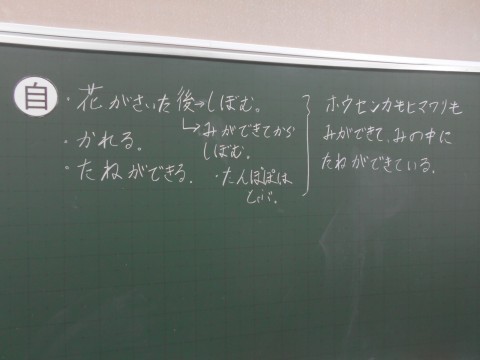 自
・花がさいた後→しぼむ。
↳みができてから
しぼむ。
・かれる。
・たねができる。
・たんぽぽは
とぶ。
ホウセンカもヒマワリも
みができて、みの中に
たねができている。